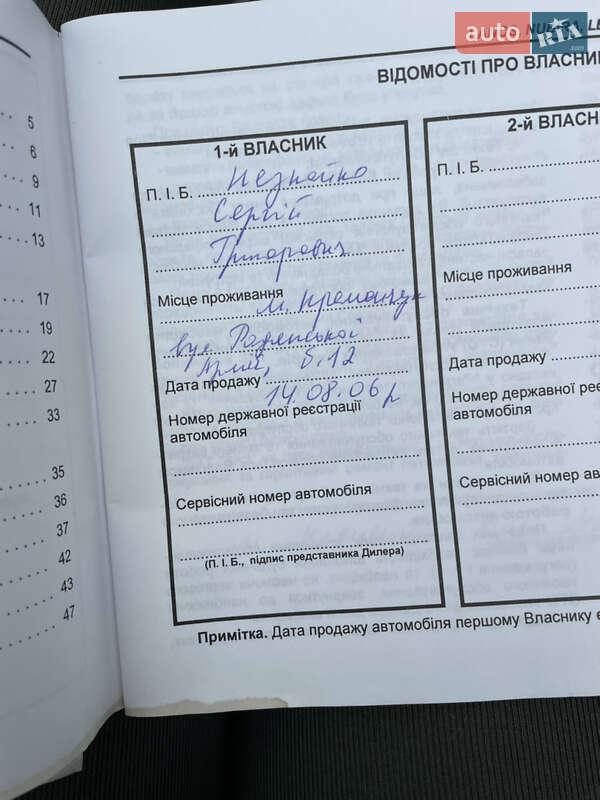 auto RIA .com
ВІДОМОСТІ ПРО ВЛАСНИ
5
6
9
11
13
17
19
22
27
33
35
36
37
42
43
47
1-й ВЛАСНИК
П. І. Б. Незнайко
Сергій
Григорович
Місце проживання
м. Кременчук
вул. Радянської
Армії, б. 12
Дата продажу
14.08.06 р
Номер державної реєстрації
автомобіля
Сервісний номер автомобіля
(П. І. Б., підпис представника Дилера)
2-й ВЛАСН
П. І. Б.
Місце проживання
Дата продажу
Номер державної рес
автомобіля
Сервісний номер автом
Примітка. Дата продажу автомобіля першому Власнику є